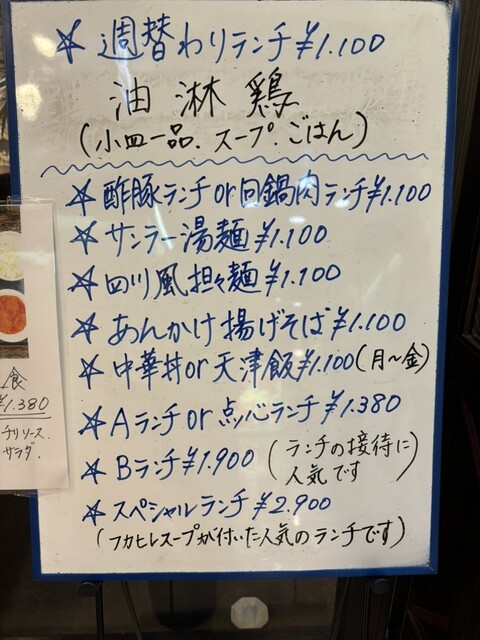 ☆ 週替わりランチ ¥1.100
油淋鶏
(小皿一品.スープ.ごはん)
☆ 酢豚ランチor回鍋肉ランチ¥1.100
☆ サンラー湯麺¥1.100
☆ 四川風担々麺¥1.100
☆ あんかけ揚げそば¥1.100
☆ 中華丼or天津飯¥1.100(月〜金)
☆ Aランチor点心ランチ¥1.380
☆ Bランチ¥1.900 (ランチの接待に
人気です)
☆ スペシャルランチ¥2.900
(フカヒレスープが付いた人気のランチです)
食
¥1.380
チリソース.
サラダ.